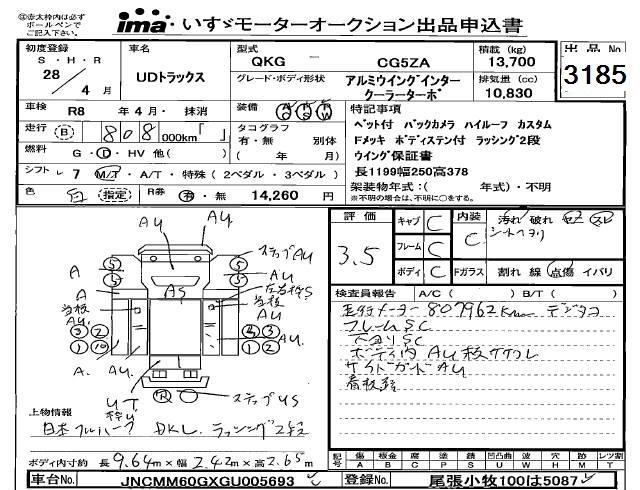 ⓘ赤太枠内は必ず
ボールペンで
ご記入下さい。
ima いすゞモーターオークション出品申込書
初度登録
S・H・R
28 / 4 月
車名
UDトラックス
型式
QKG － CG5ZA
グレード・ボディ形状
アルミウイングインタークーラーターボ
積載 (kg)
13,700
排気量 (cc)
10,830
出品No
3185
車検 R8 年 4 月・ 抹消
装備
走行 B 808 000km「 」
タコグラフ
有・無 別体
( 年 月)
燃料 G・D・HV 他( )
シフト 7 M/T・A/T・特殊 (2ペダル・3ペダル)
色 白 指定 R券 有・無 14,260 円
特記事項
ベット付 バックカメラ ハイルーフ カスタム
Fメッキ ボディステン付 ラッシング2段
ウイング保証書
長1199幅250高378
架装物年式:( 年式)・不明
※不明の場合は、不明に○をする。
評価
3.5
キャブ C
フレーム C
ボディ C
内装 C
汚れ 破れ コゲ スレ
シートヘタリ
Fガラス 割れ 線 点傷 イバリ
検査員報告 A/C ( ) B/T ( )
走行メーター807962Km デジタコ
フレームSC
下廻りSC
ボディ内AU 板ササクレ
サイドガードAU
看板跡
AU
ステップAU
A
AU
A
AS
左右枠S
当板
AU
当板
AU
A.
AU
AU
UT
枠U
R
ステップUS
上物情報
日本フルハーフ DKL. ラッシング2段
ボディ内寸約 長9.64m×幅2.42m×高2.65m
記号 傷 板金 腐 塗 錆 凹凸曲 波 穴 外 無 レツ割
A B C P S U W H M N T
車台No. JNCMM60GXGU005693
登録No. 尾張小牧100は5087